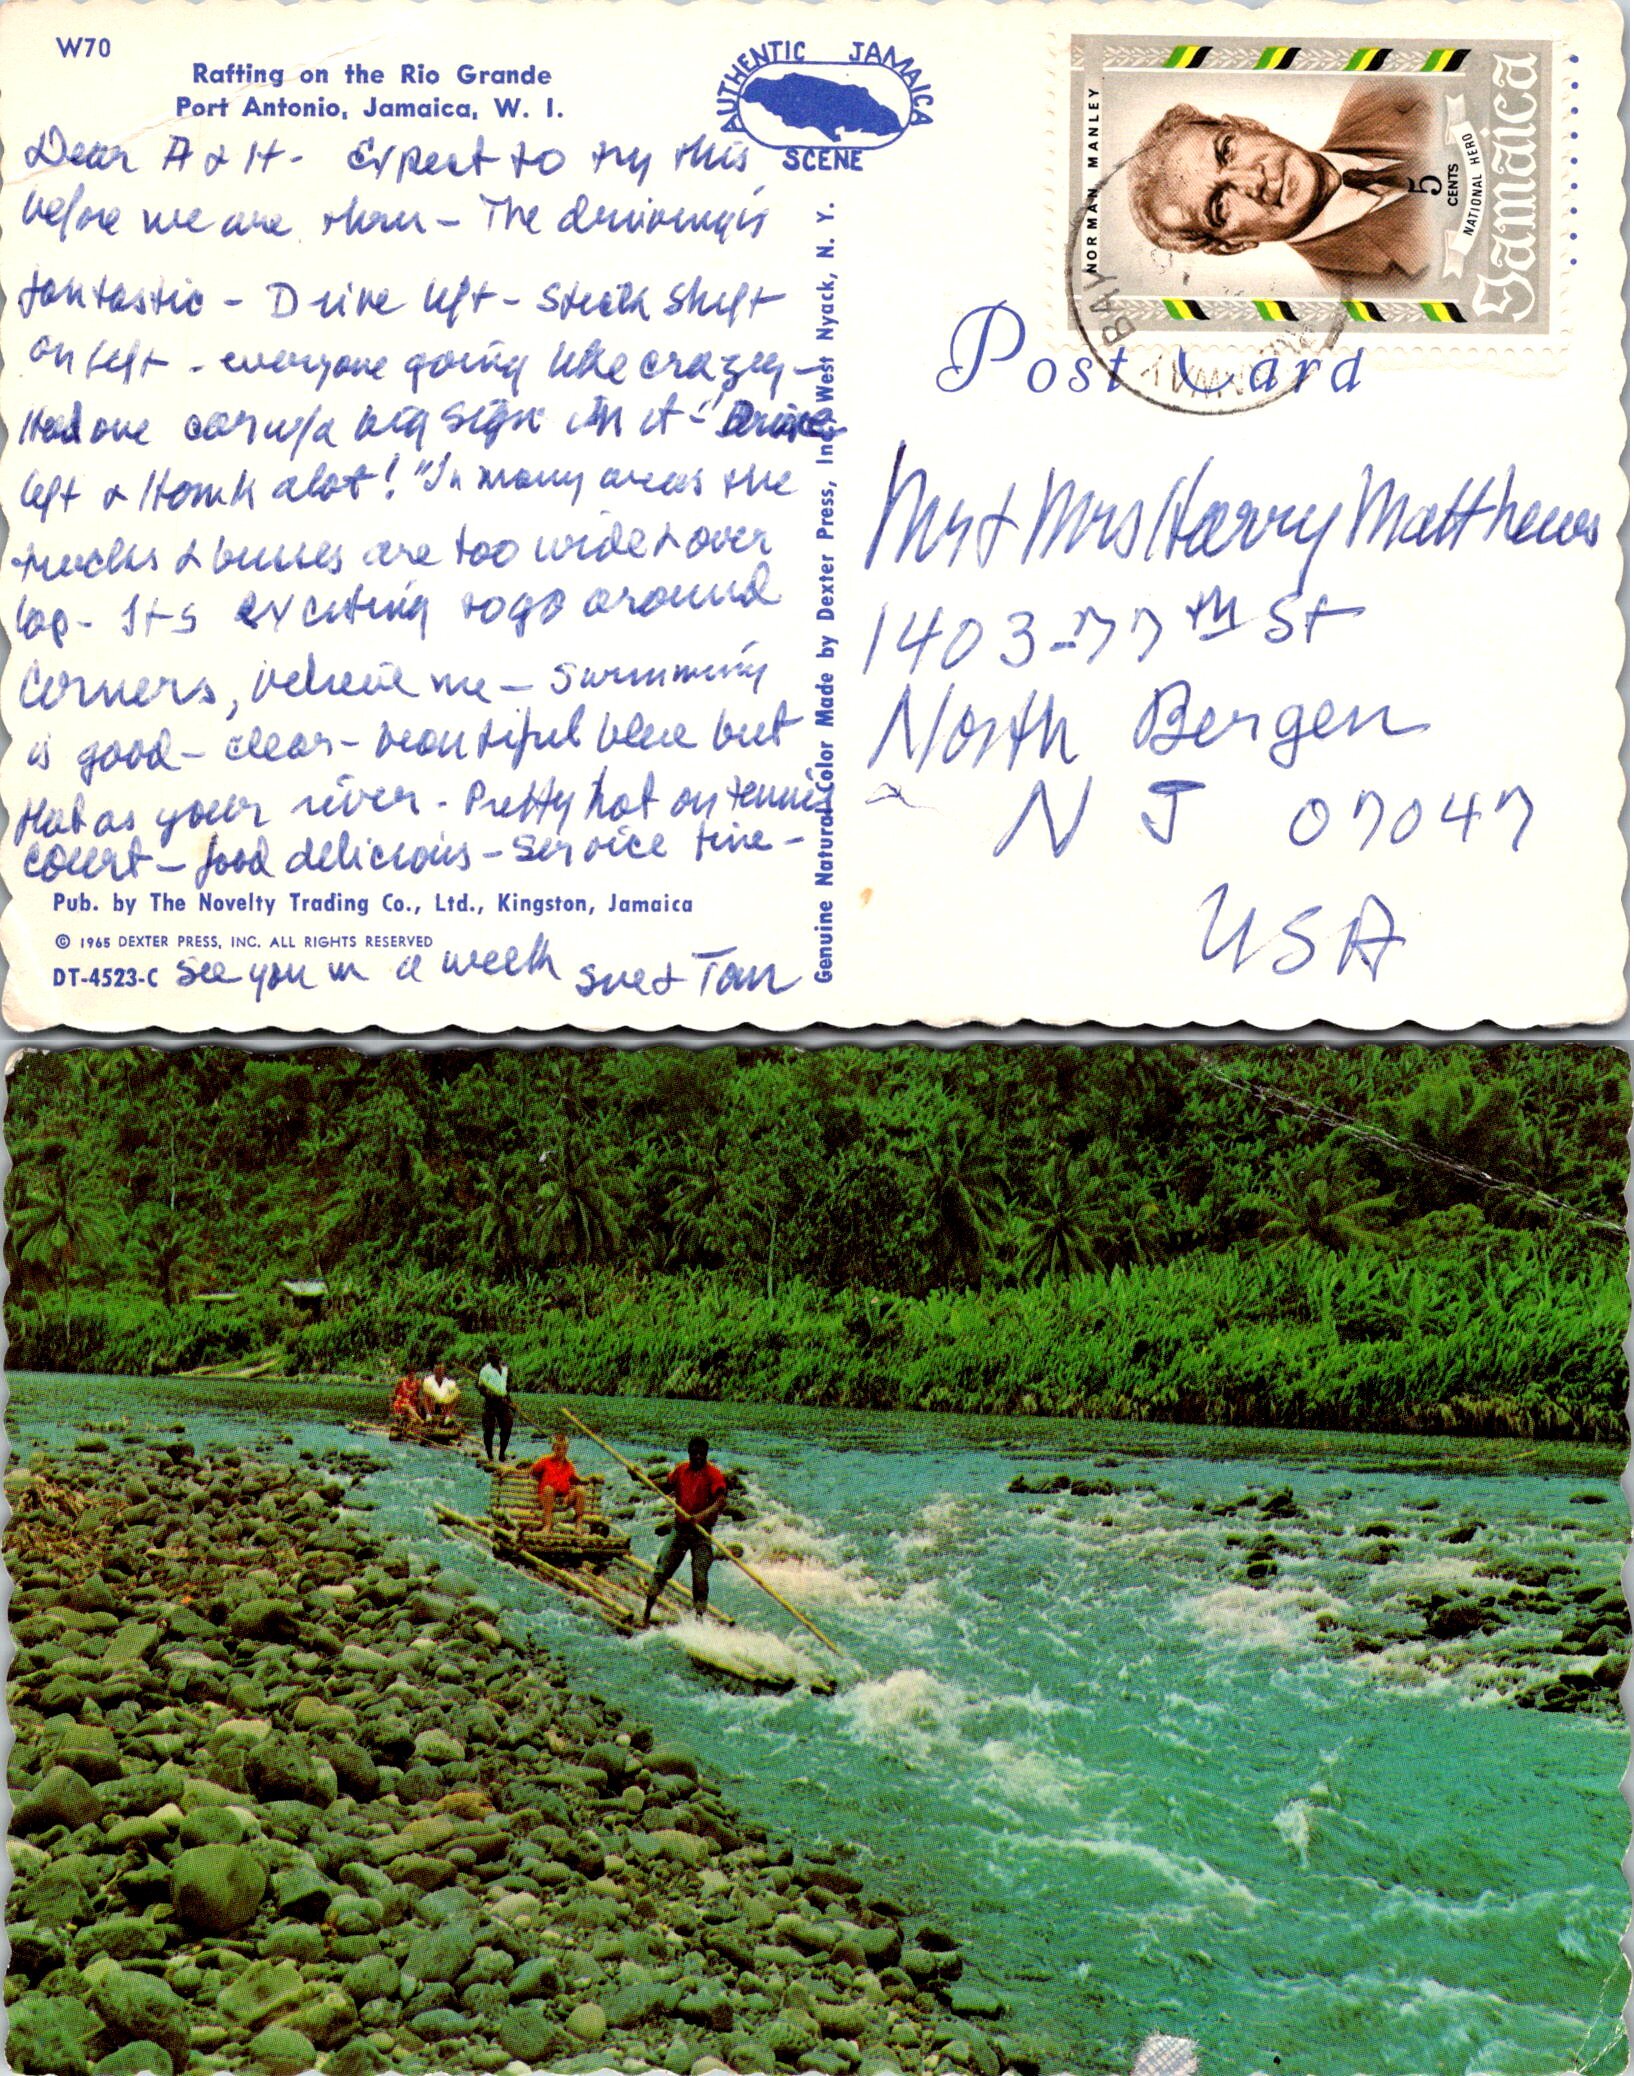 W70
Rafting on the Rio Grande
Port Antonio, Jamaica, W. I.
AUTHENTIC JAMAICA
SCENE
Dear A & H - Expect to try this
before we are thru - The driving is
fantastic - Drive left - Stick Shift
on left - everyone going like crazy -
Had one car w/a big sign on it - "Drive
left & Honk alot! "In many areas the
trucks & busses are too wide & over
lap - Its exciting to go around
Corners, believe me - Swimming
is good - clear - beautiful blue but
Hot as your river - Pretty hot on tennis
court - food delicious - Service fine -
Pub. by The Novelty Trading Co., Ltd., Kingston, Jamaica
© 1965 DEXTER PRESS, INC. ALL RIGHTS RESERVED
DT-4523-C
See you in a week Sue & Tom
Genuine Natural Color Made by Dexter Press, Inc., West Nyack, N. Y.
NORMAN MANLEY
5
CENTS
NATIONAL HERO
Jamaica
BAY
Post Card
Mr & Mrs Harry Matthews
1403-77th St
North Bergen
N J 07047
USA